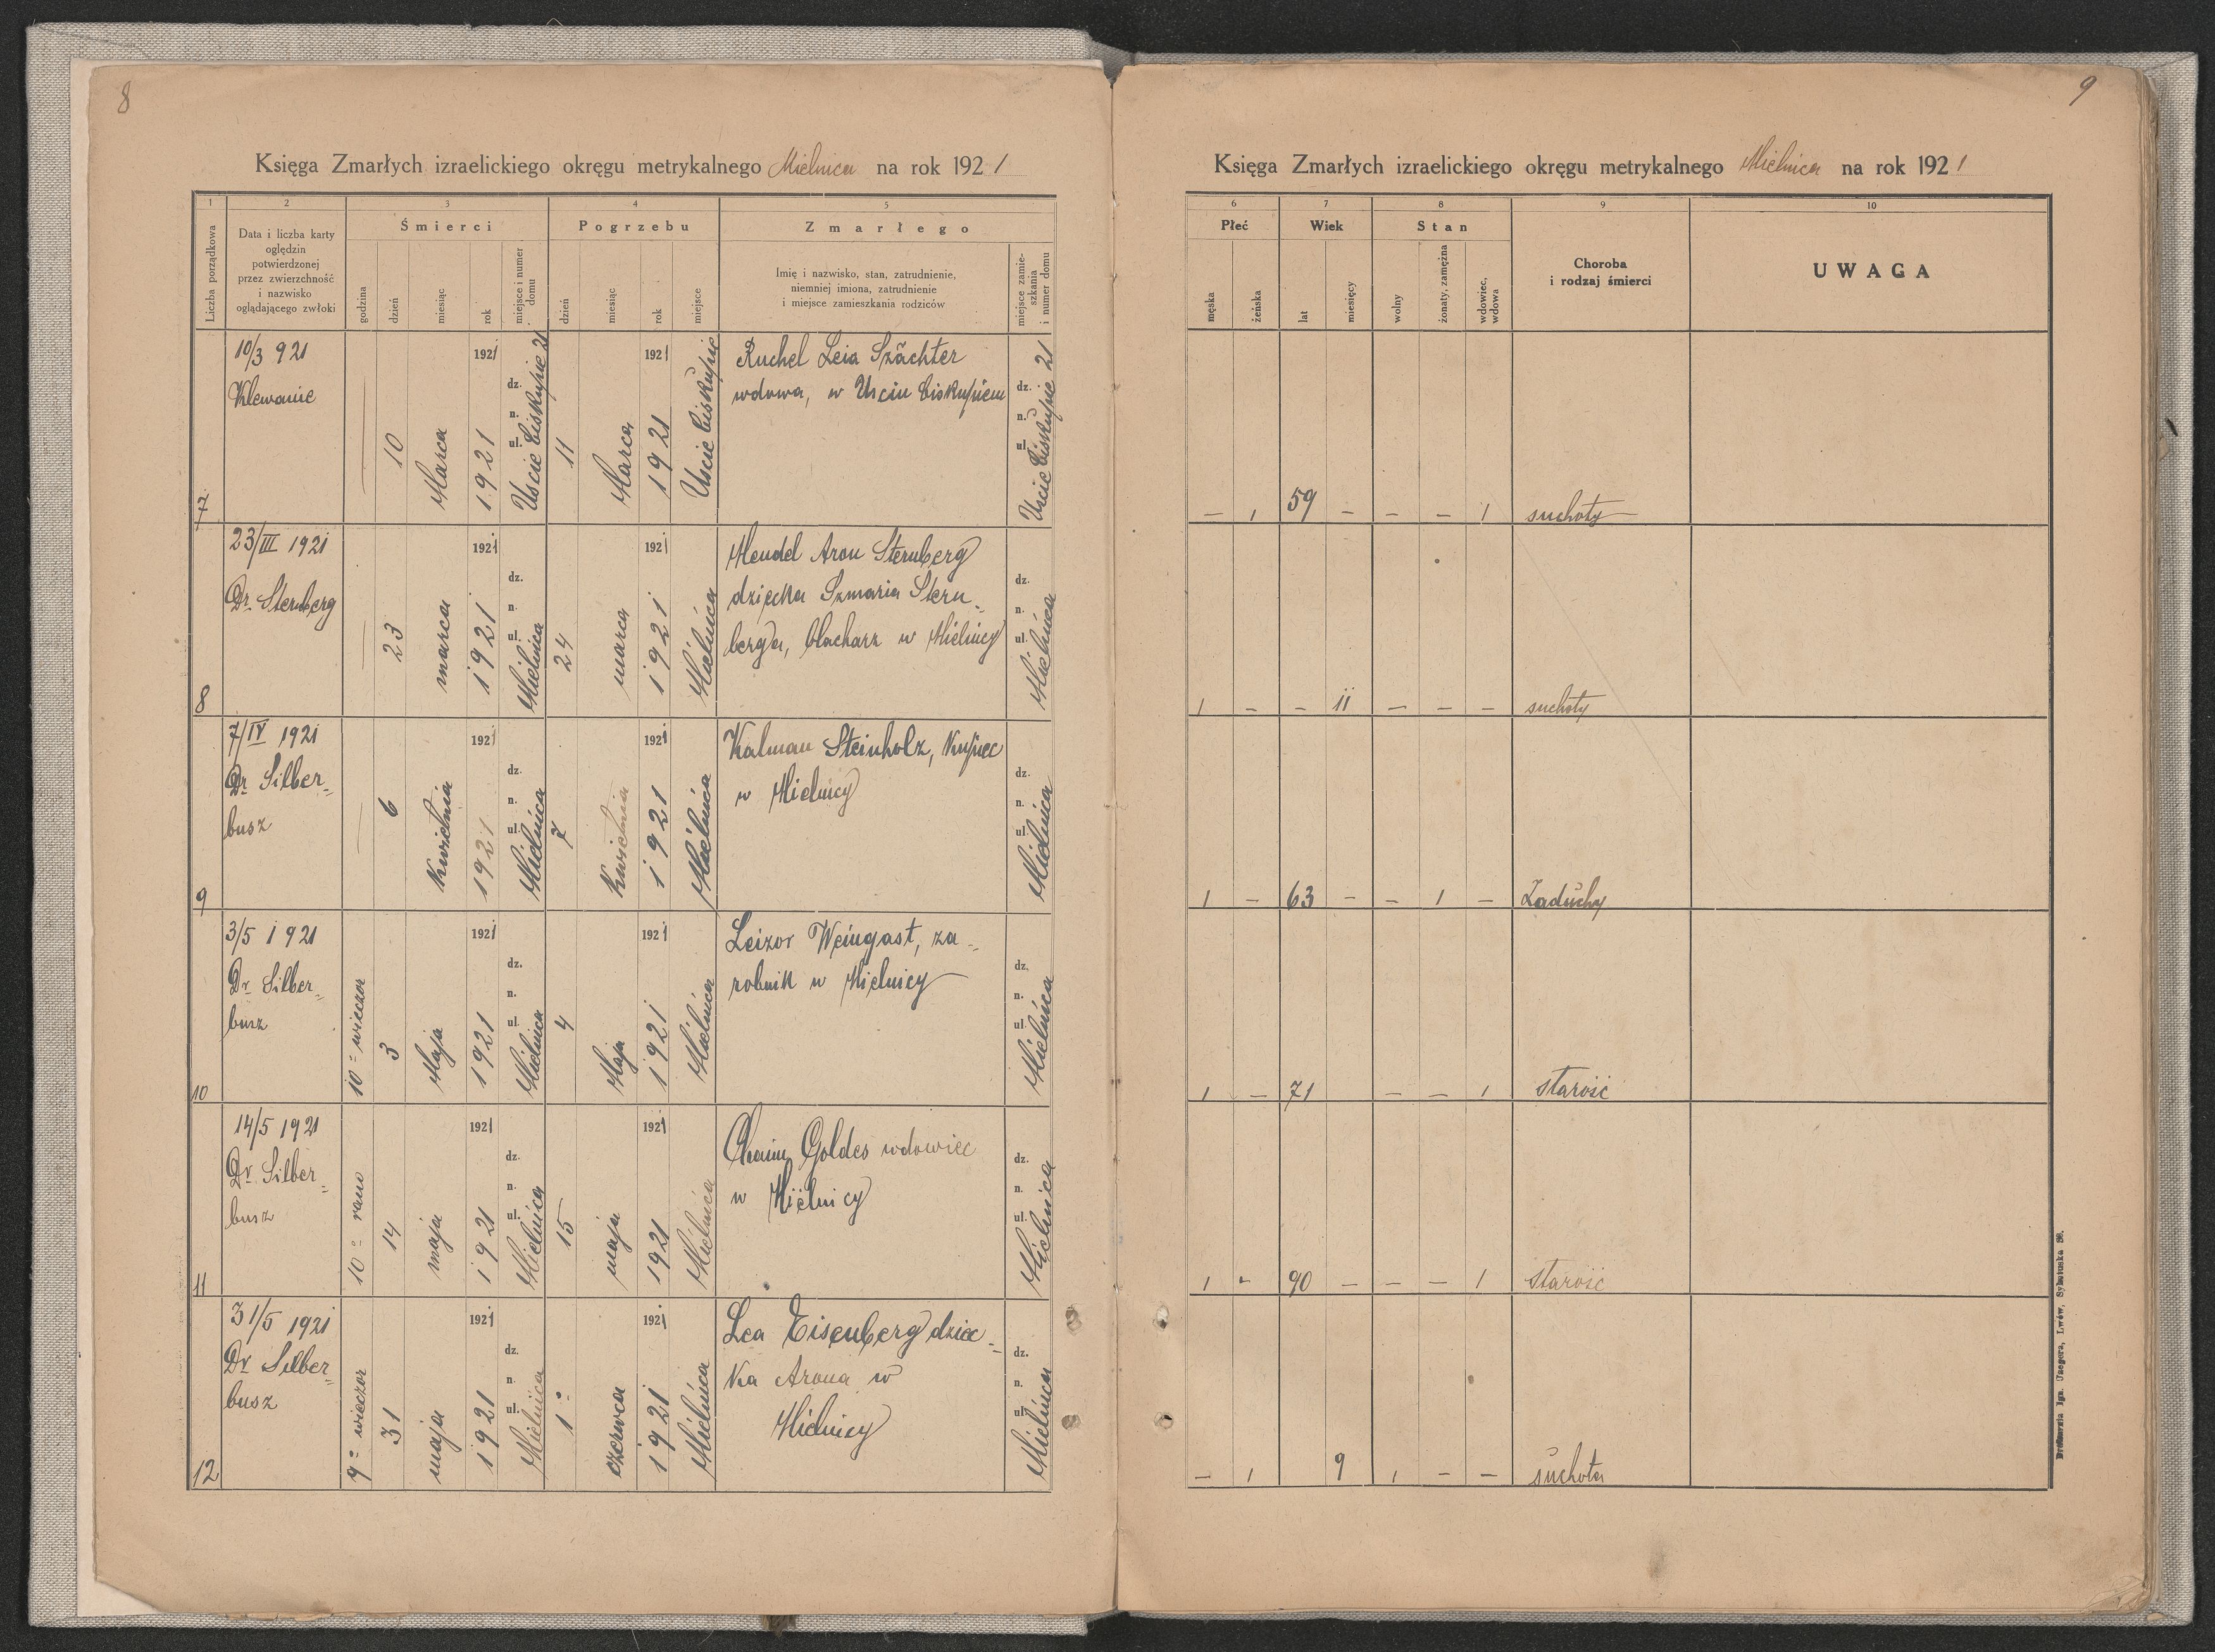 8
Księga Zmarłych izraelickiego okręgu metrykalnego Mielnica na rok 1921
1 2 3 4 5
Liczba porządkowa
Data i liczba karty
oględzin
potwierdzonej
przez zwierzchność
i nazwisko
oglądającego zwłoki
Śmierci
godzina
dzień
miesiąc
rok
miejsce i numer
domu
Pogrzebu
dzień
miesiąc
rok
miejsce
Zmarłego
Imię i nazwisko, stan, zatrudnienie,
niemniej imiona, zatrudnienie
i miejsce zamieszkania rodziców
miejsce zamie-
szkania
i numer domu
7
10/3 921
Klewanie
—
10
Marca
1921
1921
dz.
n.
ul.
Uscie biskupie 21
11
Marca
1921
1921
Uscie biskupie
Ruchel Leia Szächter
wdowa, w Usciu biskupiem
dz.
n.
ul.
Uscie biskupie 21
8
23/III 1921
Dr. Sternberg
—
23
marca
1921
1921
dz.
n.
ul.
Mielnica
24
marca
1921
1921
Mielnica
Mendel Aron Sternberg
dziecka Szmaria Stern-
berga, blacharz w Mielnicy
dz.
n.
ul.
Mielnica
9
7/IV 1921
Dr Silber-
busz
—
6
Kwietnia
1921
1921
dz.
n.
ul.
Mielnica
7
Kwietnia
1921
1921
Mielnica
Kalman Steinholz, Kupiec
w Mielnicy
dz.
n.
ul.
Mielnica
10
3/5 1921
Dr Silber-
busz
10 wieczor
3
Maja
1921
1921
dz.
n.
ul.
Mielnica
4
Maja
1921
1921
Mielnica
Leizor Weingast, za-
robnik w Mielnicy
dz.
n.
ul.
Mielnica
11
14/5 1921
Dr Silber-
busz
10 rano
14
maja
1921
1921
dz.
n.
ul.
Mielnica
15
maja
1921
1921
Mielnica
Chaim Goldes wdowiec
w Mielnicy
dz.
n.
ul.
Mielnica
12
31/5 1921
Dr Silber-
busz
9 wieczor
31
maja
1921
1921
dz.
n.
ul.
Mielnica
1
czerwca
1921
1921
Mielnica
Lea Eisenberg dziec-
ka Arona w
Mielnicy
dz.
n.
ul.
Mielnica
9
Księga Zmarłych izraelickiego okręgu metrykalnego Mielnica na rok 1921
6 7 8 9 10
Płeć
męska
żeńska
Wiek
lat
miesięcy
Stan
wolny
żonaty, zamężna
wdowiec,
wdowa
Choroba
i rodzaj śmierci
UWAGA
— 1 59 — — — 1 suchoty
1 — — 11 — — — suchoty
1 — 63 — — 1 — Zaduchy
1 — 71 — — 1 starość
1 — 90 — — — 1 starość
— 1 9 1 — — suchota
Drukarnia Ign. Jaegera, Lwów, Sykstuska 33.